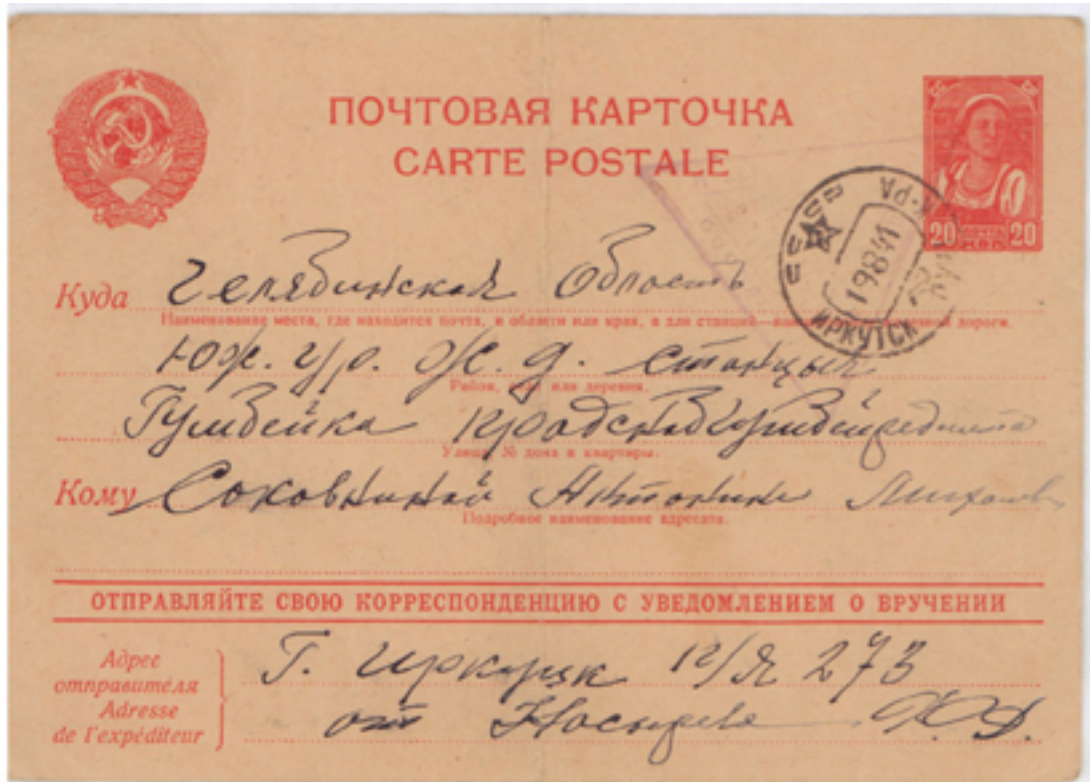 ПОЧТОВАЯ КАРТОЧКА
CARTE POSTALE
20 20
СССР
19 8 41
ИРКУТСК
Куда Челябинская Область
Наименование места, где находится почта, и области или края, а для станций
дороги.
Юж. Ур. Ж. д. станцыя
Район, село или деревня.
Гумбейка
Улица, № дома и квартиры.
Кому Соковниной Антонине
Подробное наименование адресата.
ОТПРАВЛЯЙТЕ СВОЮ КОРРЕСПОНДЕНЦИЮ С УВЕДОМЛЕНИЕМ О ВРУЧЕНИИ
Адрес
отправителя
Adresse
de l'expéditeur
Г. Иркуцк П/Я 273
от